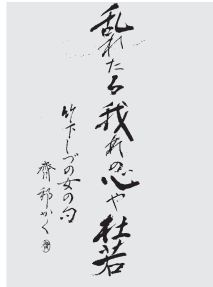 乱れたる我れの心や杜若
竹下しづの女の句
齊郁かく